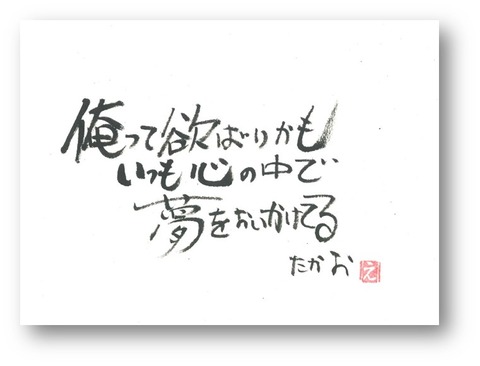 俺って欲ばりかも
いつも心の中で
夢をおいかけてる
たかお
え